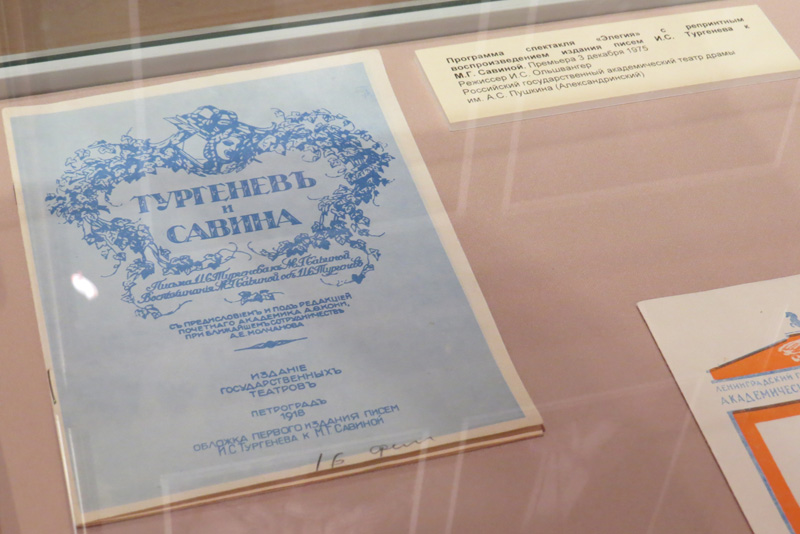 ТУРГЕНЕВЪ
и
САВИНА
Письма И.С.Тургенева к М.Г.Савиной
Воспоминанiя М.Г.Савиной об И.С.Тургеневе
СЪ ПРЕДИСЛОВIЕМЪ И ПОДЪ РЕДАКЦIЕЙ
ПОЧЕТНАГО АКАДЕМИКА А.Ф.КОНИ,
ПРИ БЛИЖАЙШЕМЪ СОТРУДНИЧЕСТВѢ
А.Е.МОЛЧАНОВА
ИЗДАНIЕ
ГОСУДАРСТВЕННЫХЪ
ТЕАТРОВЪ
ПЕТРОГРАДЪ
1918
ОБЛОЖКА ПЕРВОГО ИЗДАНИЯ ПИСЕМ
И.С.ТУРГЕНЕВА К М.Г.САВИНОЙ
16
Программа спектакля «Элегия» с репринтным
воспроизведением издания писем И.С. Тургенева к
М.Г. Савиной. Премьера 3 декабря 1975
Режиссер И.С. Ольшвангер
Российский государственный академический театр драмы
им. А.С. Пушкина (Александринский)
ЛЕНИНГРАДСКИЙ
АКАДЕМИЧЕС